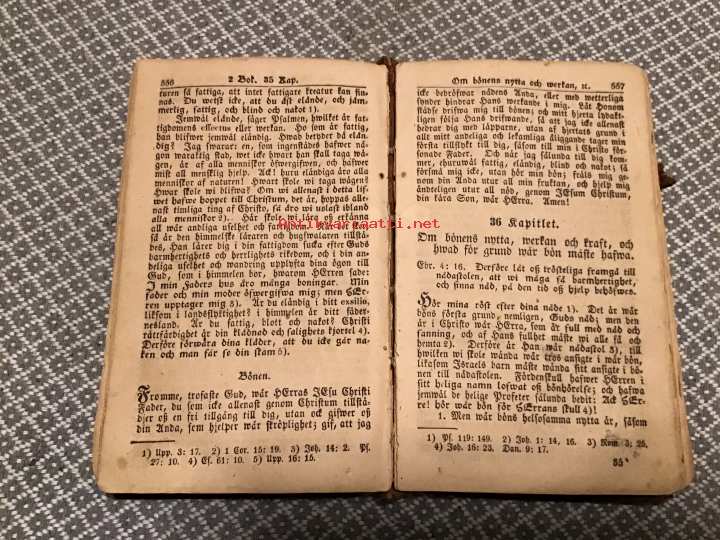 556
2 Bok. 35 Kap.
turen så fattiga, att intet fattigare kreatur kan fin-
nas. Du wetst icke, att du äst elände, och jäm-
merlig, fattig, och blind och nakot 1).
Jemwäl elände, säger Psalmen, hwilket är fat-
tigdomens effectus eller werkan. Ho som är fattig,
han blifwer jemwäl eländig. Hwad betyder då elän-
dig? Jag swarar: en, som ingenstädes hafwer nå-
gon waraktig stad, wet icke hwart han skall taga wä-
gen, är af alla menniskor öfwergifwen, och hafwer
mist all mensklig hjelp. Ack! huru eländiga äro alla
menniskor af naturen! Hwart skole wi taga wägen?
Hwar skole wi blifwa? Om wi allenast i detta lif-
wet hafwe hoppet till Christum, det är, hoppas alle-
nast timliga ting af Christo, så äro wi uslast ibland
alla menniskor 2). Här skole wi lära oß erkänna
all wår andliga uselhet och fattigdom.
så är den himmelske läraren och hugswalaren tillstä-
des, Han lärer dig i din fattigdom sucka efter Guds
barmhertighets och herrlighets rikedom, och i din an-
deliga uselhet och wandring upplyfta dina ögon till
Gud, som i himmelen bor, hwarom HErren sade:
I min Faders hus äro många boningar. Min
fader och min moder öfwergifwa mig; men HEr-
ren upptager mig 3). Är du eländig i ditt exsilio,
liksom i landsflyktighet? i himmelen är ditt fäder-
nesland. Är du fattig, blott och nakot? Christi
rättfärdighet är din klädnad och salighets kjortel 4).
Derföre förwara dina kläder, att du icke går na-
ken och man får se din skam 5).
Bönen.
Fromme, trofaste Gud, wår HErras JEsu Christi
Fader, du som icke allenast genom Christum tillstä-
djer oß en fri tillgång till dig, utan ock gifwer oß
din Anda, som hjelper wår skröplighet; gif, att jag
1) Upp. 3: 17. 2) 1 Cor. 15: 19. 3) Joh. 14: 2. Ps.
27: 10. 4) Es. 61: 10. 5) Upp. 16: 15.
Om bönens nytta och werkan, rc.
557
icke bedröfwar nådens Anda, eller med wetterliga
synder hindrar Hans werkande i mig. Låt Honom
städse drifwa mig till bönen; och mitt hjerta lydakti-
ligen följa Hans drifwande, så att jag icke allenast
hedrar dig med läpparne, utan af hjertats grund i
allt mitt andeliga och lekamliga åliggande tager min
första tillflykt till dig, såsom till min i Christo för-
sonade Fader. Och när jag sålunda till dig kom-
mer, ehuruwäl fattig, eländig, blind och nakot; så
försmå mig icke, utan hör min bön; fräls mig ge-
nom din Anda utur all min fruktan, och hjelp mig
ändteligen utur all nöd, genom JEsum Christum,
din kära Son, wår HErra. Amen!
36 Kapitlet.
Om bönens nytta, werkan och kraft, och
hwad för grund wår bön måste hafwa.
Ebr. 4: 16. Derföre låt oß trösteliga framgå till
nådastolen, att wi måga få barmhertighet,
och finna nåd, på den tid oß hjelp behöfwes.
Hör mina röst efter dina nåde 1). Det är wår
böns första grund, nemligen, Guds nåd; men den
är i Christo wår HErra, som är full med nåd och
sanning, och af Hans fullhet måste wi alle få och
hemta 2). Derföre är Han wår nådastol 3), till
hwilken wi skole wända wår tros ansigte i wår bön,
likasom Israels barn måste wända sitt ansigte i bö-
nen till nådastolen. Fördenskull hafwer HErren i
sitt heliga namn lofwat oß bönhörelse; och hafwa
jemwäl de helige Profeter sålunda bedit: Ack HEr-
re! hör wår bön för HErrans skull 4)!
1. Men wår böns helsosamma nytta är, såsom
1) Ps. 119: 149. 2) Joh. 1: 14, 16. 3) Rom. 3: 25.
4) Joh. 16: 23. Dan. 9: 17.
35*
antikvariaatti.net